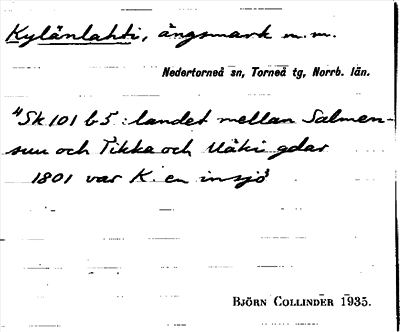 Kylänlahti, ängsmark m.m.
Nedertorneå sn, Torneå tg, Norrb. län.
"Sk 101 b 5: landet mellan Salmen-
suu och Tikka och Näki gdar
1801 var K. en insjö
BJÖRN COLLINDER 1935.